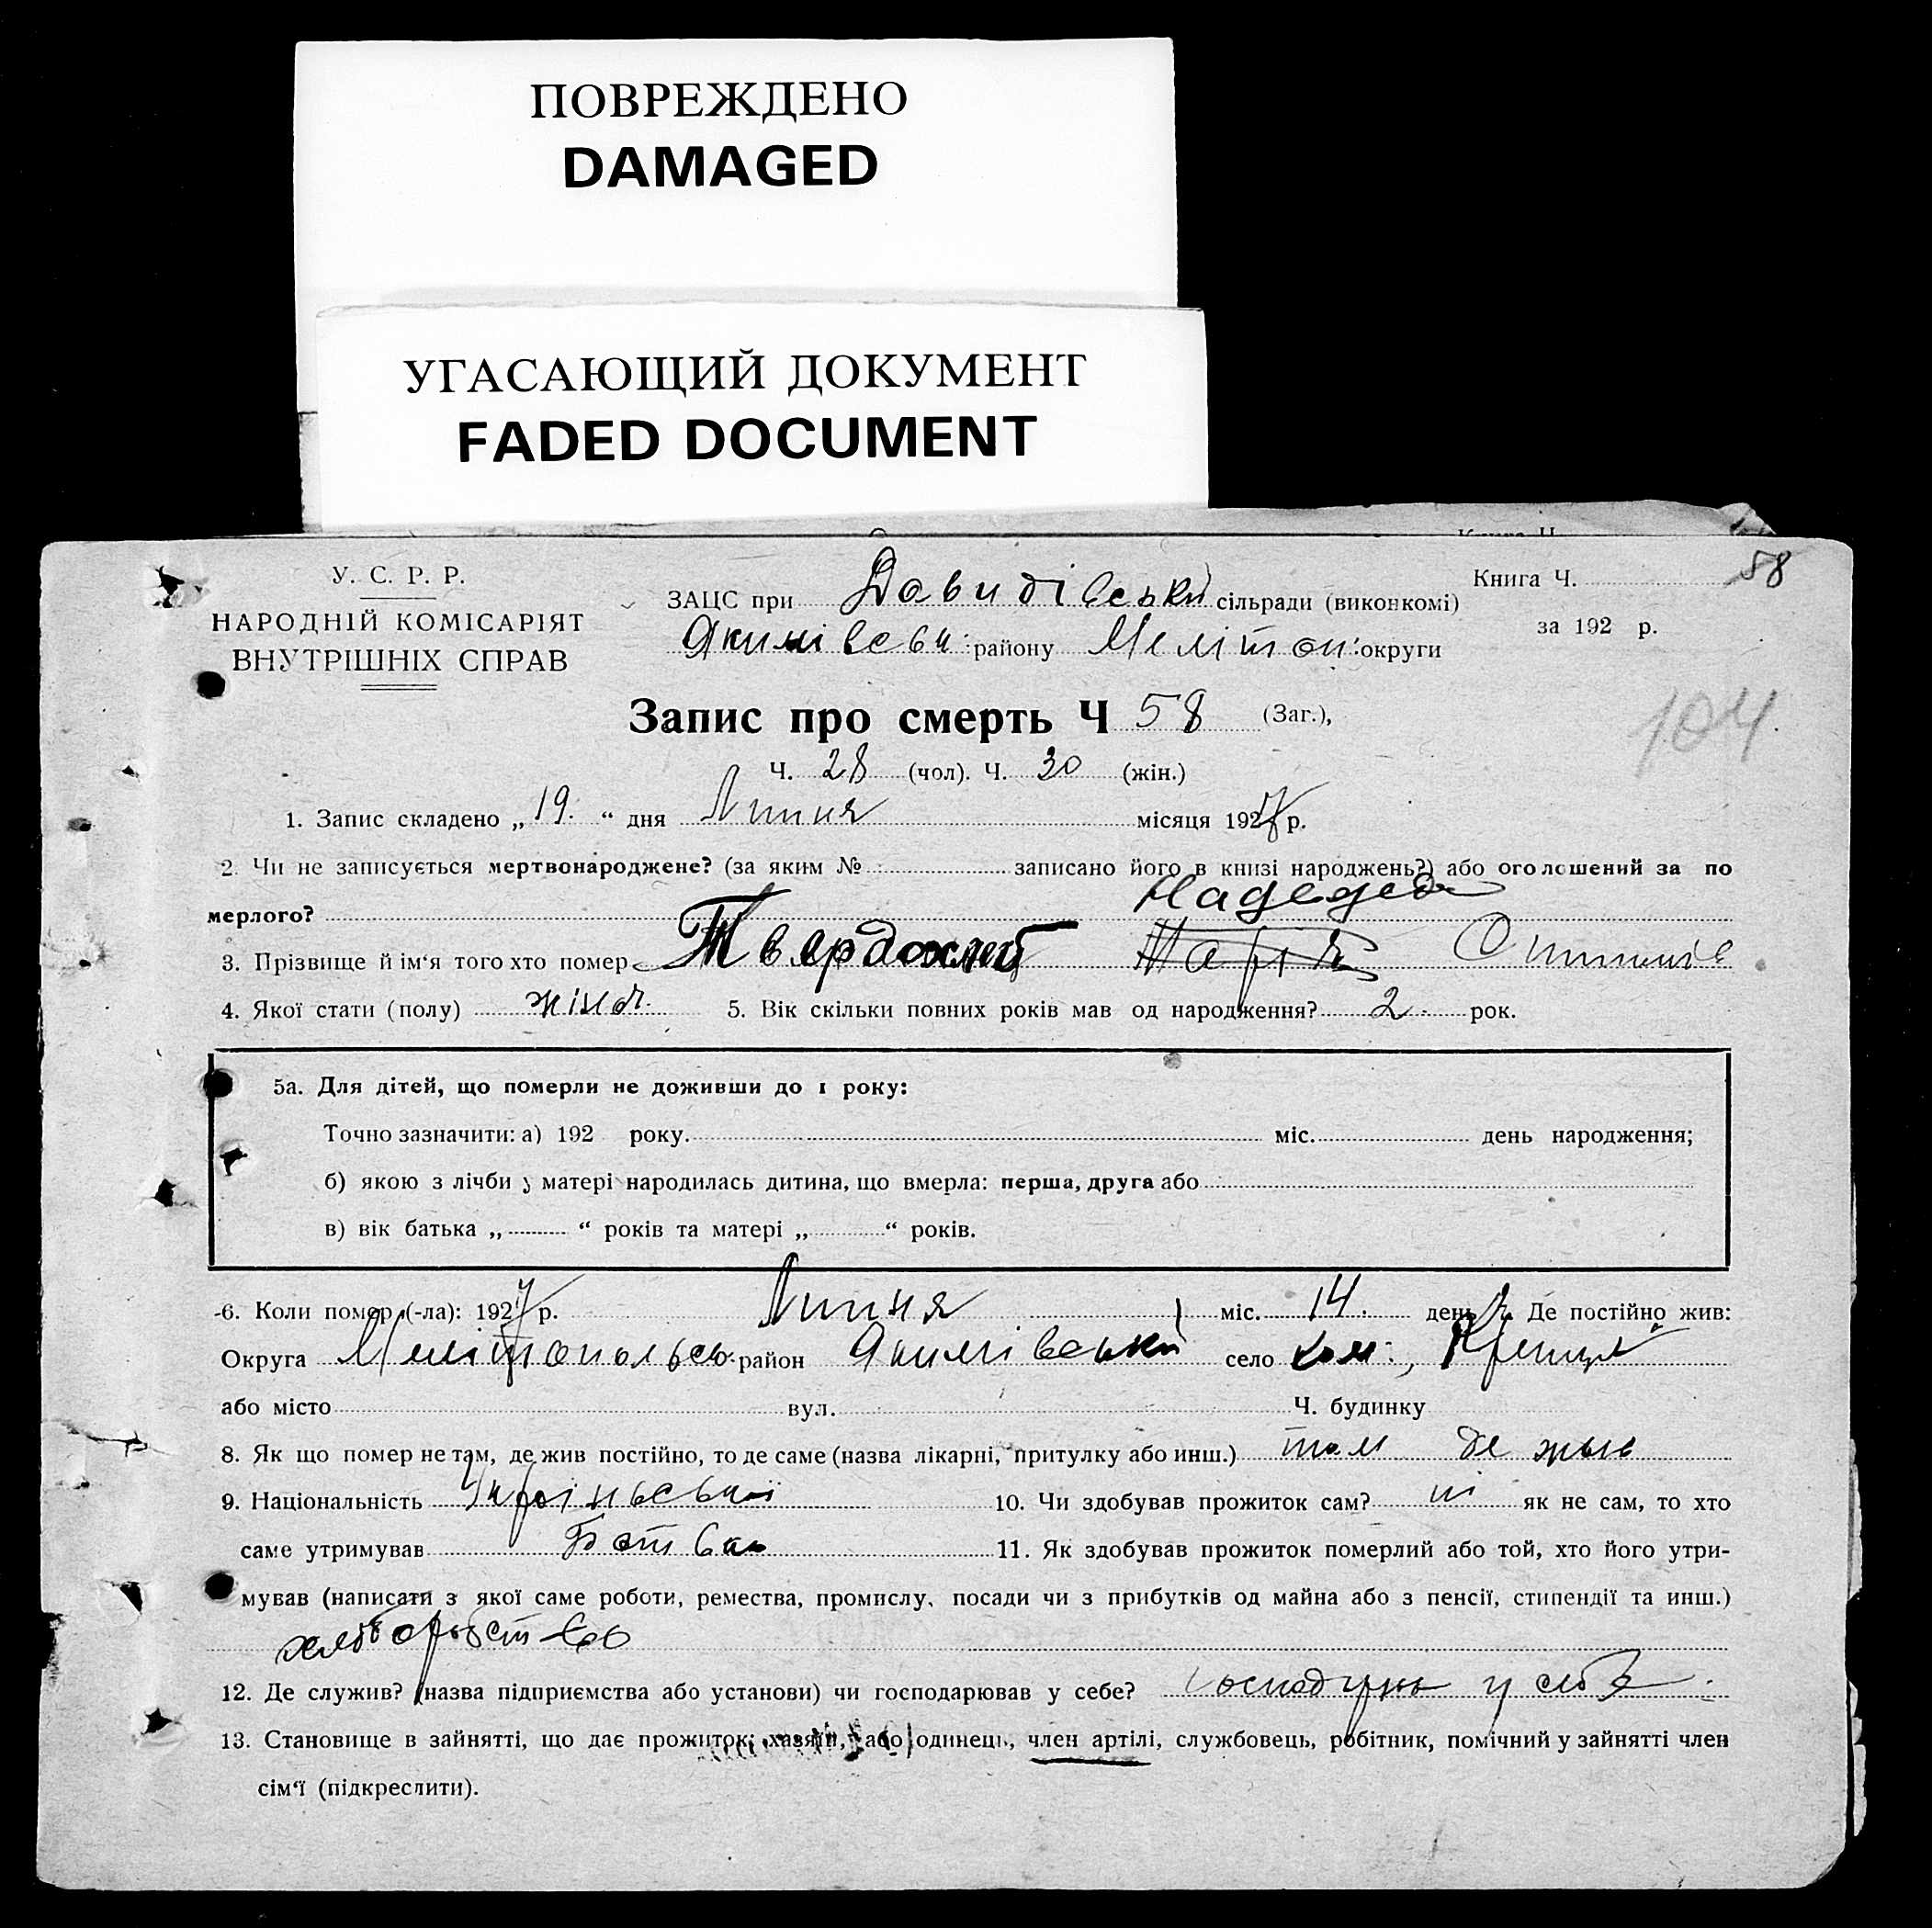 ПОВРЕЖДЕНО
DAMAGED
УГАСАЮЩИЙ ДОКУМЕНТ
FADED DOCUMENT
У. С. Р. Р.
НАРОДНІЙ КОМІСАРІЯТ
ВНУТРІШНІХ СПРАВ
ЗАЦС при Давидівські сільради (виконкомі)
Якимівськ: району Мелітоп: округи
Книга Ч. 58
за 192 р.
Запис про смерть Ч 58 (Заг.),
104
Ч. 28 (чол). Ч. 30 (жін.)
1. Запис складено „19.“ дня Липня місяця 1927 р.
2. Чи не записується мертвонароджене? (за яким № записано його в книзі народжень?) або оголошений за по
мерлого?
3. Прізвище й ім'я того хто помер Твердохліб
4. Якої стати (полу) жіноч. 5. Вік скільки повних років мав од народження? 2. рок.
5а. Для дітей, що померли не доживши до 1 року:
Точно зазначити: а) 192 року. міс. день народження;
б) якою з лічби у матері народилась дитина, що вмерла: перша, друга або
в) вік батька „ “ років та матері „ “ років.
6. Коли помер (-ла): 1927 р. Липня міс. 14. день 7. Де постійно жив:
Округа Мелітопольсь. район Якимівськи село
або місто вул. Ч. будинку
8. Як що помер не там, де жив постійно, то де саме (назва лікарні, притулку або инш.) там де жив
9. Національність Української 10. Чи здобував прожиток сам? ні як не сам, то хто
саме утримував Батько 11. Як здобував прожиток померлий або той, хто його утри-
мував (написати з якої саме роботи, ремества, промислу, посади чи з прибутків од майна або з пенсії, стипендії та инш.)
хліборобство
12. Де служив? (назва підприємства або установи) чи господарював у себе? у себе
13. Становище в зайнятті, що дає прожиток: хазяїн, або одинець, член артілі, службовець, робітник, помічний у зайнятті член
сім'ї (підкреслити).